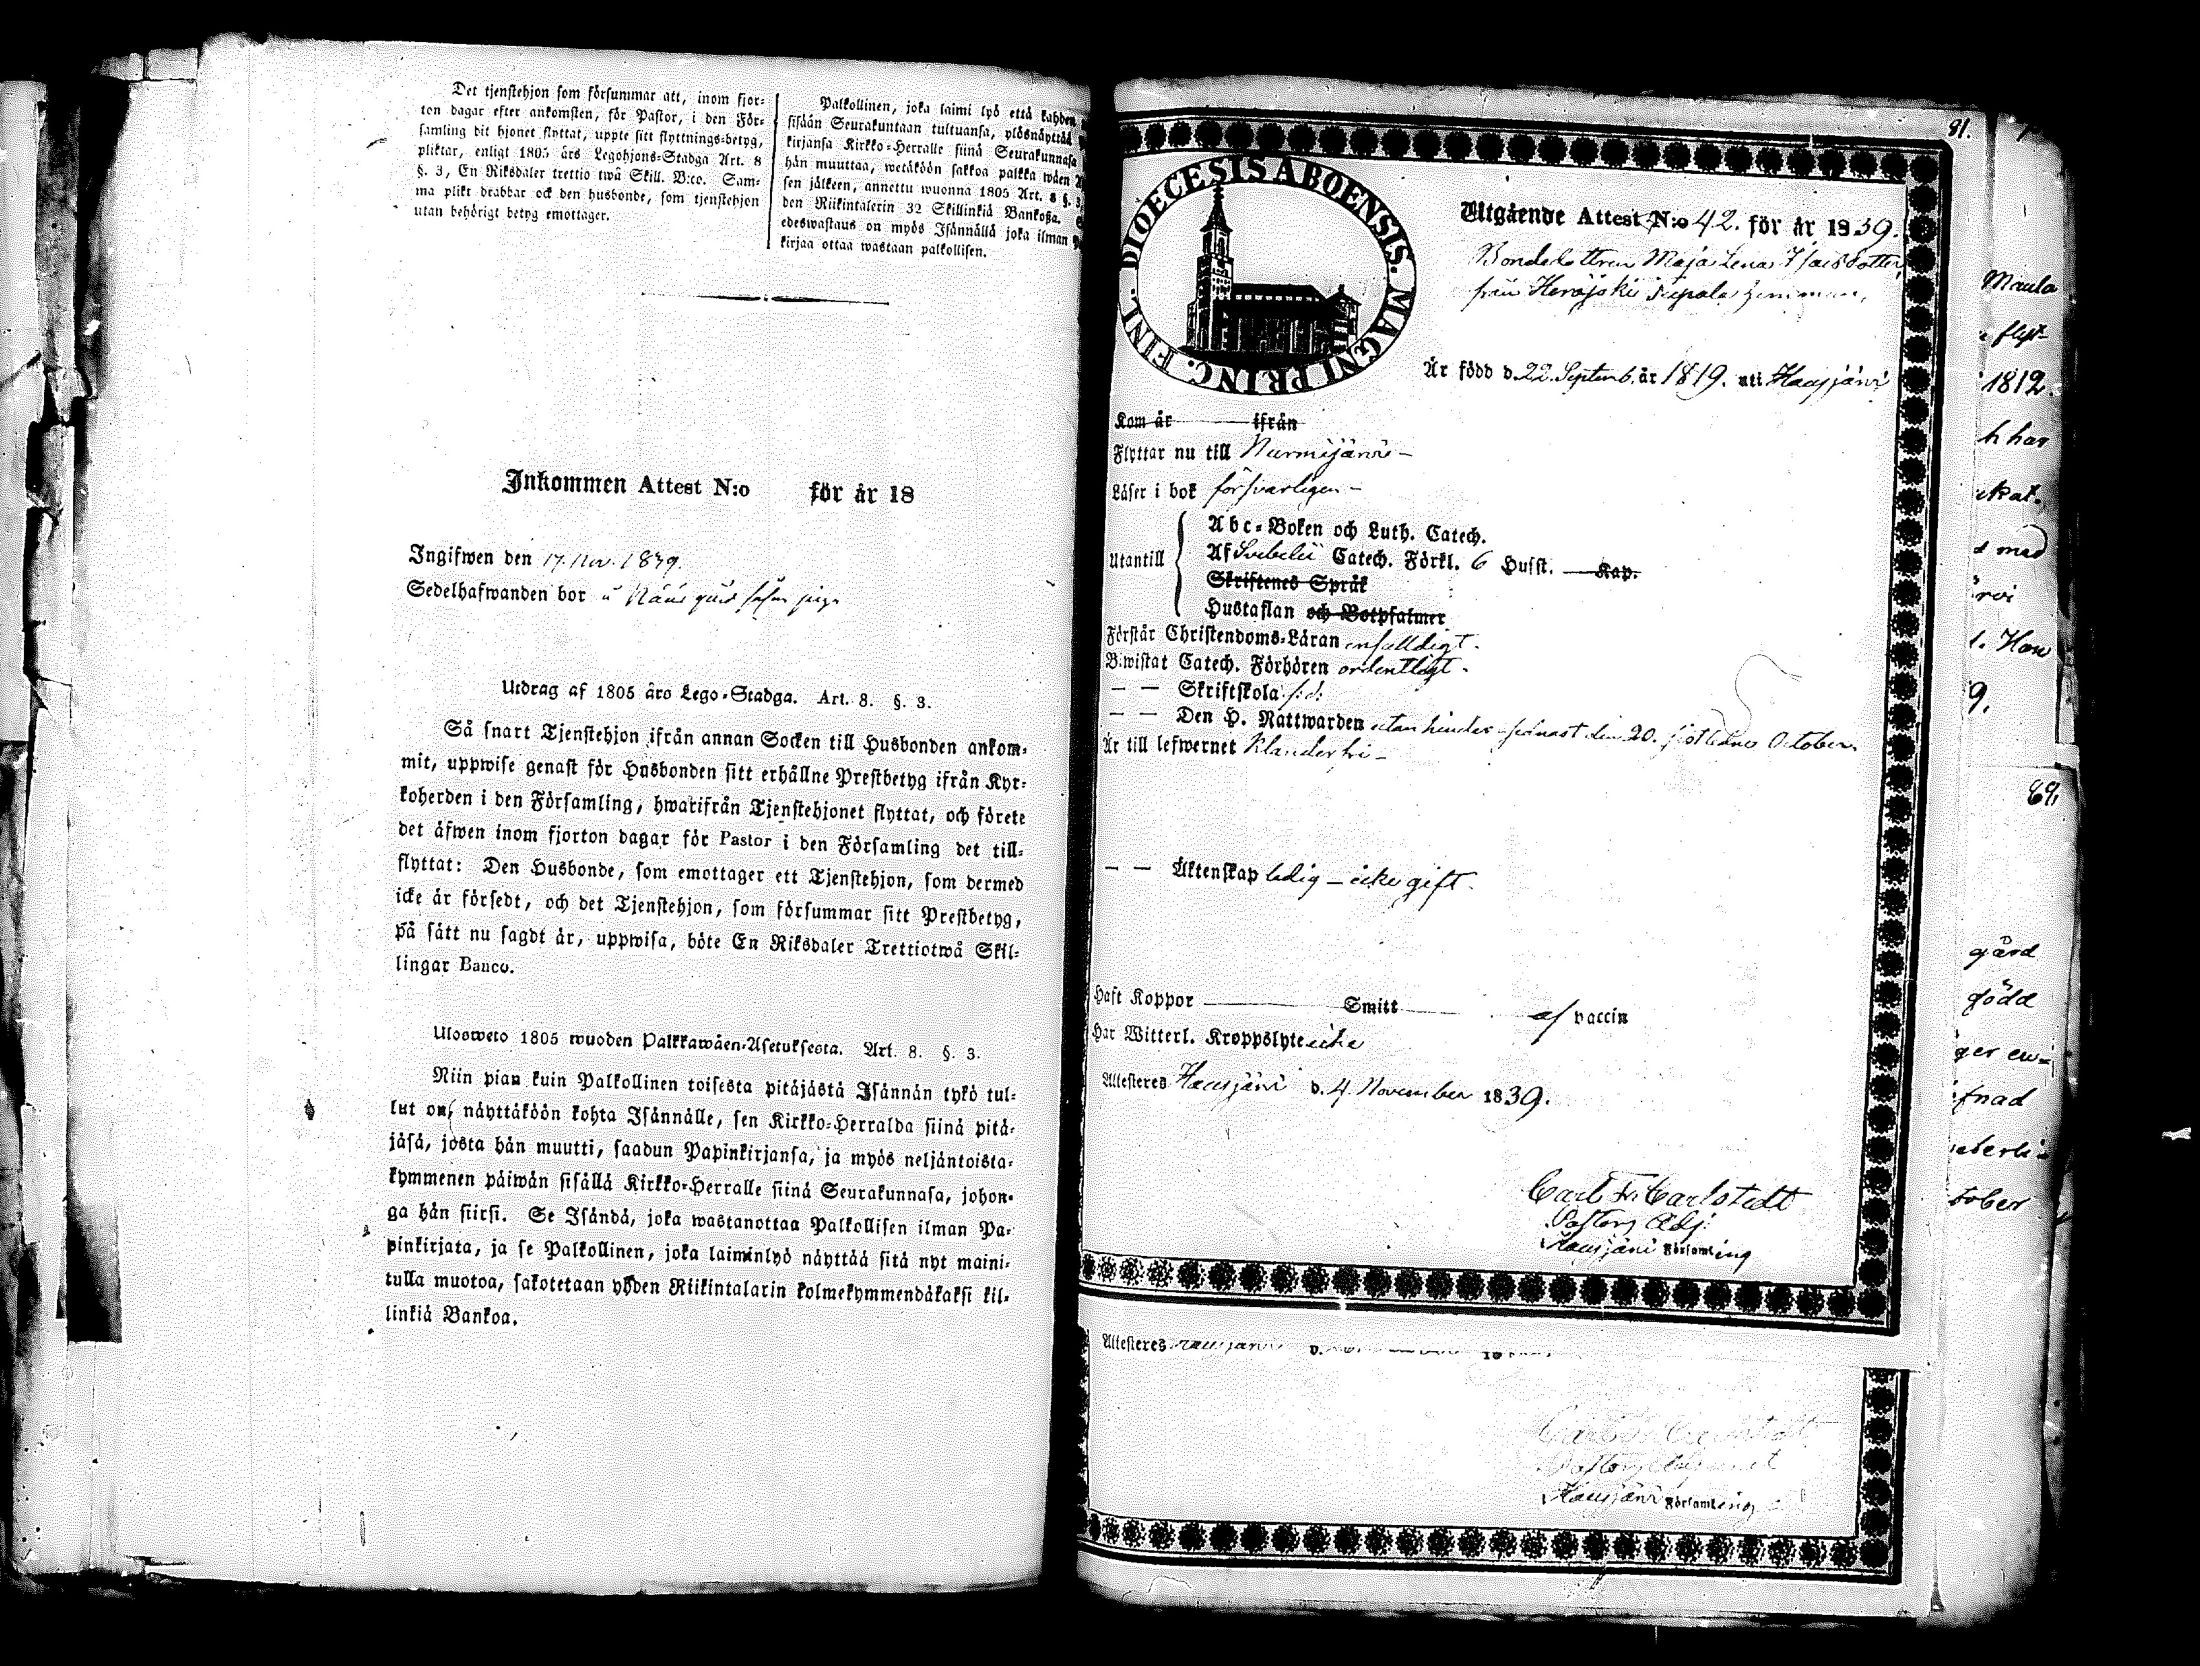 Det tjenstehjon som försummar att, inom fjor-
ton dagar efter ankomsten, för Pastor, i den För-
samling dit hjonet flyttat, uppte sitt flyttnings-betyg,
pliktar, enligt 1805 års Legohjons-Stadga Art. 8
§. 3, En Riksdaler trettio twå Skill. B:co. Sam-
ma plikt drabbar ock den husbonde, som tjenstehjon
utan behörigt betyg emottager.
Palkollinen, joka laimi lyö että kahden
sisään Seurakuntaan tultuansa, ylösnäyttää
kirjansa Kirkko-Herralle siinä Seurakunnasa
hän muuttaa, wetäköön sakkoa palkka wäen
sen jälkeen, annettu wuonna 1805 Art. 8 §. 3,
den Riikintalerin 32 Skillinkiä Bankoßa.
edeswastaus on myös Isännällä joka ilman
kirjaa ottaa wastaan palkollisen.
Inkommen Attest N:o för år 18
Ingifwen den 17. Nov. 1839.
Sedelhafwanden bor
Utdrag af 1805 års Lego-Stadga. Art. 8. §. 3.
Så snart Tjenstehjon ifrån annan Socken till Husbonden ankom-
mit, uppwise genast för Husbonden sitt erhållne Prestbetyg ifrån Kyr-
koherden i den Församling, hwarifrån Tjenstehjonet flyttat, och förete
det äfwen inom fjorton dagar för Pastor i den Församling det till-
flyttat: Den Husbonde, som emottager ett Tjenstehjon, som dermed
icke är försedt, och det Tjenstehjon, som försummar sitt Prestbetyg,
på sätt nu sagdt är, uppwisa, böte En Riksdaler Trettiotwå Skil-
lingar Banco.
Ulosweto 1805 wuoden Palkkawäen-Asetuksesta. Art. 8. §. 3.
Niin pian kuin Palkollinen toisesta pitäjästä Isännän tykö tul-
lut on, näyttäköön kohta Isännälle, sen Kirkko-Herralda siinä pitä-
jäsä, josta hän muutti, saadun Papinkirjansa, ja myös neljäntoista-
kymmenen päiwän sisällä Kirkko-Herralle siinä Seurakunnasa, johon-
ga hän siirsi. Se Isändä, joka wastanottaa Palkollisen ilman Pa-
pinkirjata, ja se Palkollinen, joka laiminlyö näyttää sitä nyt maini-
tulla muotoa, sakotetaan yhden Riikintalarin kolmekymmendäkaksi kil-
linkiä Bankoa.
81.
DIOECESIS ABOENSIS. MAGNI PRINC. FINL.
Utgående Attest N:o 42. för år 1839.
Bondedottren Maja Lena Isacsdotter,
från Herajoki hemman,
Är född d. 22. Septemb. år 1819. uti Hausjärvi
Kom år ifrån
Flyttar nu till Nurmijärvi –
Läser i bok försvarligen –
Utantill
Abc-Boken och Luth. Catech.
Af Svebelii Catech. Förkl. 6 Hufst. Kap.
Skriftenes Språk
Hustaflan och Botpsalmer
Förstår Christendoms-Läran enfalldigt.
Biwistat Catech. Förhören ordentligt.
– – Skriftskola
– – Den H. Nattwarden utan hinder – senast den 20. sistledne October.
Är till lefwernet Klanderfri –
– – Äktenskap ledig – icke gift.
Haft Koppor Smitt af vaccin
Har Witterl. Kroppslyte icke
Attesteres Hausjärvi d. 4. November 1839.
Carl Fr. Carlstedt
Pastors Adj.
Hausjärvi Församling
Attesteres Hausjärvi d.
Hausjärvi Församling
Maula
1812.
h har
med
1. Hon
9.
69,
gård
född